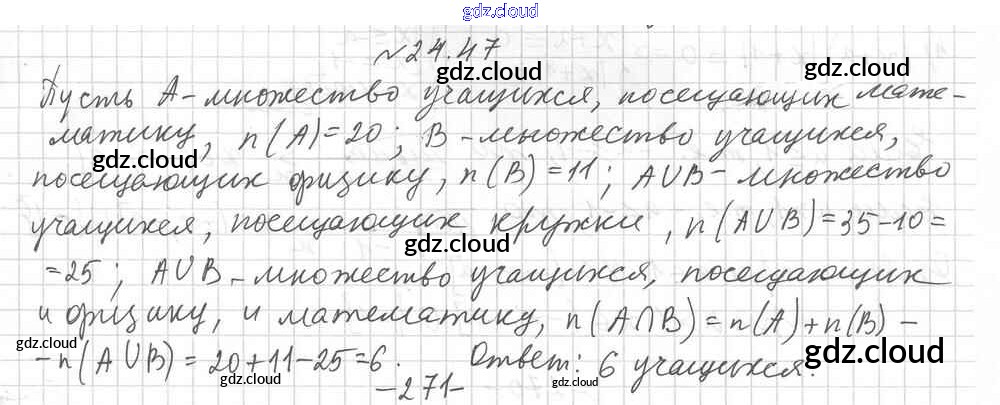 gdz.cloud
№24.47
gdz.cloud gdz.cloud
Пусть А-множество учащихся, посещающих мате-
gdz.cloud
матику, n(A)=20; В-множество учащихся,
gdz.cloud gdz.cloud
посещающих физику, n(B)=11; A∪B-множество
учащихся, посещающих кружки, n(A∪B)=35-10=
gdz.cloud
=25; A∪B-множество учащихся, посещающих
и физику, и математику, n(A∩B)=n(A)+n(B)-
gdz.cloud gdz.cloud
-n(A∪B)=20+11-25=6. Ответ: 6 учащихся.
gdz.cloud gdz.cloud
-271-